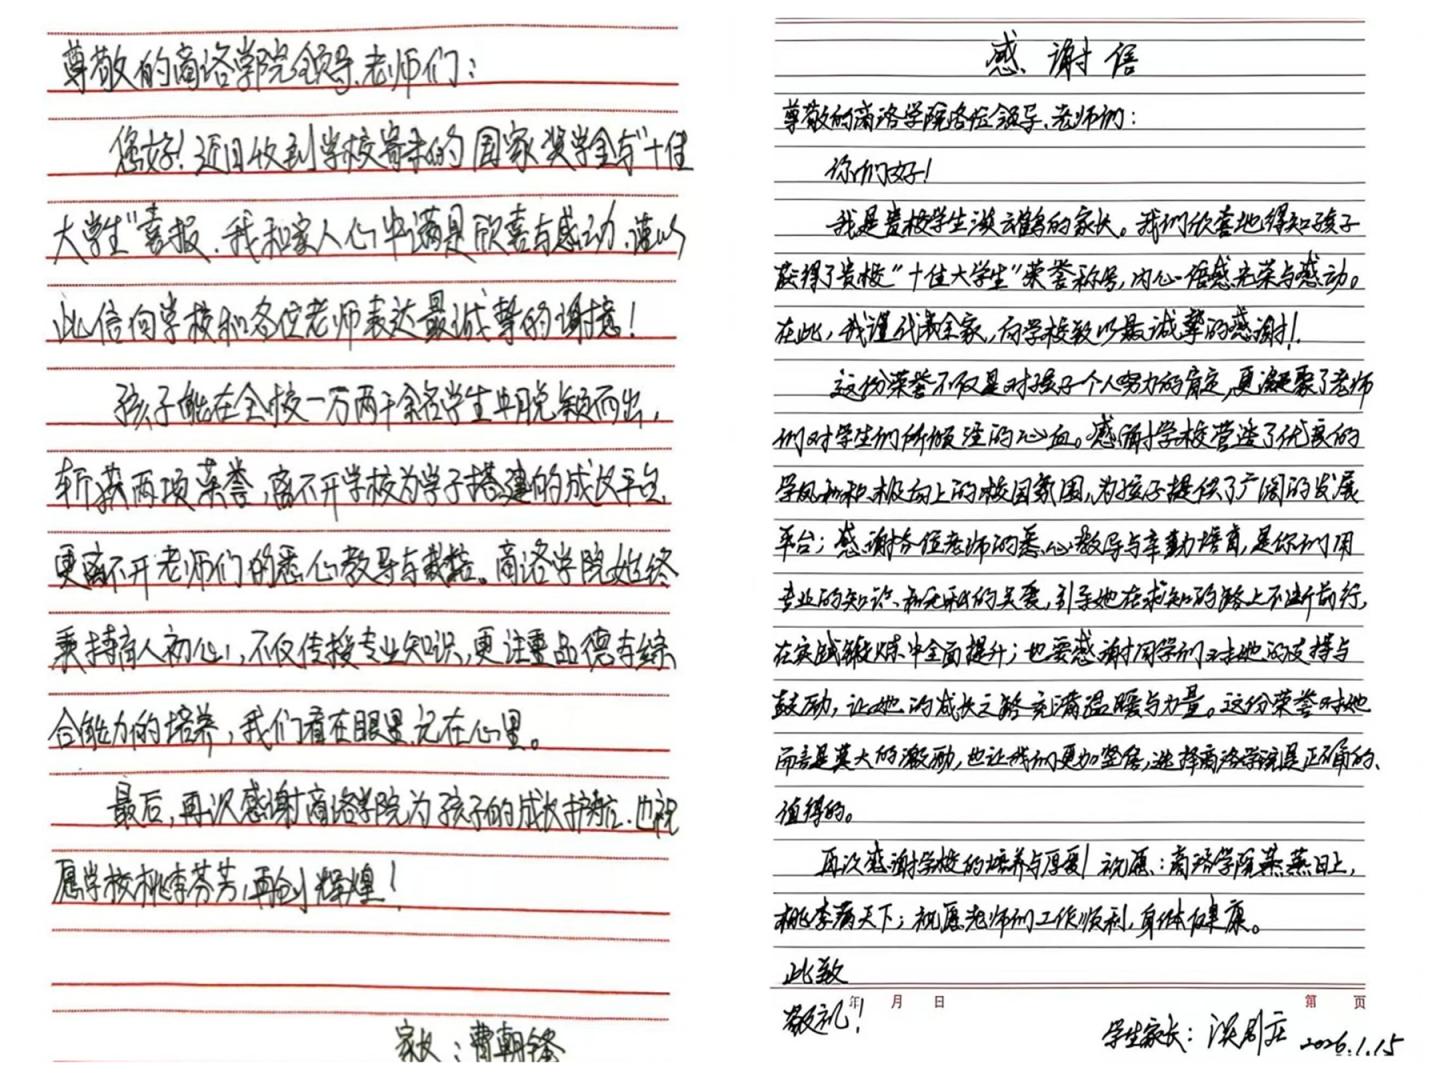 尊敬的商洛学院领导、老师们：
您好！近日收到学校寄来的国家奖学金与“十佳
大学生”喜报，我和家人心中满是欣喜与感动，谨以
此信向学校和各位老师表达最诚挚的谢意！
孩子能在全校一万两千余名学生中脱颖而出，
斩获两项荣誉，离不开学校为学子搭建的成长平台，
更离不开老师们的悉心教导与栽培。商洛学院始终
秉持育人初心，不仅传授专业知识，更注重品德与综
合能力的培养，我们看在眼里，记在心里。
最后，再次感谢商洛学院为孩子的成长护航，也祝
愿学校桃李芬芳，再创辉煌！
家长：曹朝锋
感谢信
尊敬的商洛学院各位领导、老师们：
你们好！
我是贵校学生淡云鹤的家长。我们欣喜地得知孩子
获得了贵校“十佳大学生”荣誉称号，内心倍感光荣与感动。
在此，我谨代表全家，向学校致以最诚挚的感谢！
这份荣誉不仅是对孩子个人努力的肯定，更凝聚了老师
们对学生们所倾注的心血。感谢学校营造了优良的
学风和积极向上的校园氛围，为孩子提供了广阔的发展
平台；感谢各位老师的悉心教导与辛勤培育，是你们用
专业的知识、和无私的关爱，引导她在求知的路上不断前行，
在实践锻炼中全面提升；也要感谢同学们对她的支持与
鼓励，让她的成长之路充满温暖与力量。这份荣誉对她
而言是莫大的激励，也让我们更加坚信，选择商洛学院是正确的、
值得的。
再次感谢学校的培养与厚爱！祝愿：商洛学院蒸蒸日上，
桃李满天下；祝愿老师们工作顺利，身体健康。
此致
年 月 日 第 页
敬礼！
学生家长：淡 2026.1.15